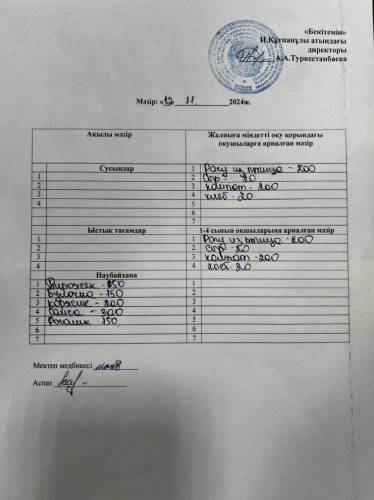 «Бекітемін»
И.Құтпанұлы атындағы
директоры
А.А.Туркестанбаева
Мәзір: «13 11 2024ж.
Ақылы мәзір
Жалпыға міндетті оқу қорындағы
оқушыларға арналған мәзір
Сусындар
1
2
3
4
1 Рагу из птица - 200
2 - 20
3 компот - 200
4 хлеб - 20
5
6
7
Ыстық тағамдар
1
2
3
4
1-4 сынып оқушыларына арналған мәзір
1 Рагу из птица - 200
2
3 компот - 200
4 хлеб - 20
Наубайхана
1 Пирожек - 250
2 Булочка - 150
3 Коржик - 200
4 - 300
5 150
6
7
1
2
3
4
5
6
7
Мектеп медбикесі
Аспаз